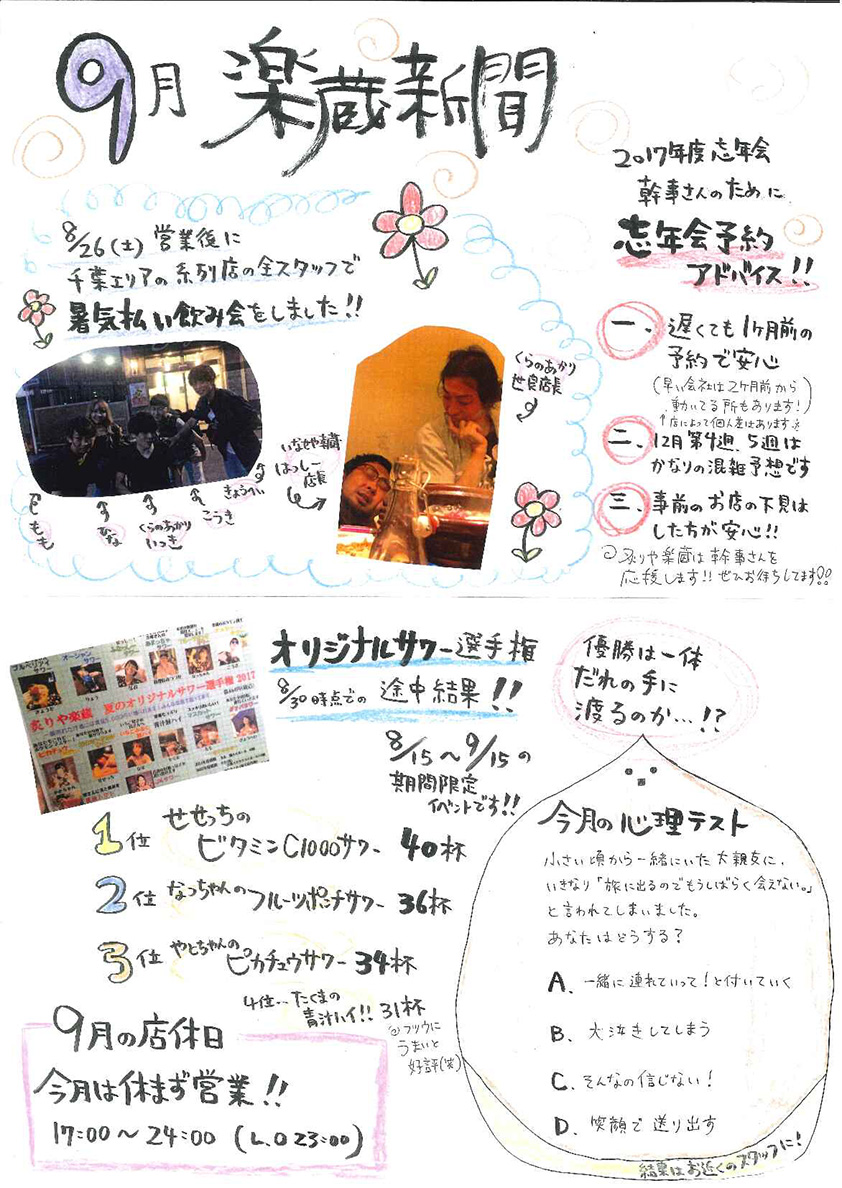 9月 楽蔵新聞
8/26(土) 営業後に
千葉エリアの系列店の全スタッフで
暑気払い飲み会をしました!!
もも
ひな
くらのあかり
いっき
こうき
きょうへい
いなせや幸蔵
はっしー
店長
くらのあかり
世良店長
2017年度 忘年会
幹事さんのために
忘年会予約
アドバイス!!
一、遅くても1ヶ月前の
予約で安心
(早い会社は2ヶ月前から
動いてる所もあります!)
↑店によって個人差はあります
二、12月第4週、5週は
かなりの混雑予想です
三、事前のお店の下見は
した方が安心!!
炙りや楽蔵は幹事さんを
応援します!!ぜひお待ちしてます!!
ブルベリアイ
サワー
オーシャン
サワー
炙りや楽蔵 夏のオリジナルサワー選手権2017
オリジナルサワー選手権
8/30時点での 途中結果!!
8/15〜9/15の
期間限定
イベントです!!
1位 せせっちの
ビタミンC1000サワー 40杯
2位 なっちゃんの
フルーツポンチサワー 36杯
3位 やとちゃんの
ピカチュウサワー 34杯
4位…たくまの
青汁ハイ!! 31杯
フツウに
うまいと
好評(笑)
優勝は一体
だれの手に
渡るのか…!?
今月の心理テスト
小さい頃から一緒にいた大親友に、
いきなり「旅に出るのでもうしばらく会えない。」
と言われてしまいました。
あなたはどうする?
A. 一緒に連れていって!と付いていく
B. 大泣きしてしまう
C. そんなの信じない!
D. 笑顔で送り出す
結果はお近くのスタッフに!
9月の店休日
今月は休まず営業!!
17:00〜24:00 (L.O 23:00)